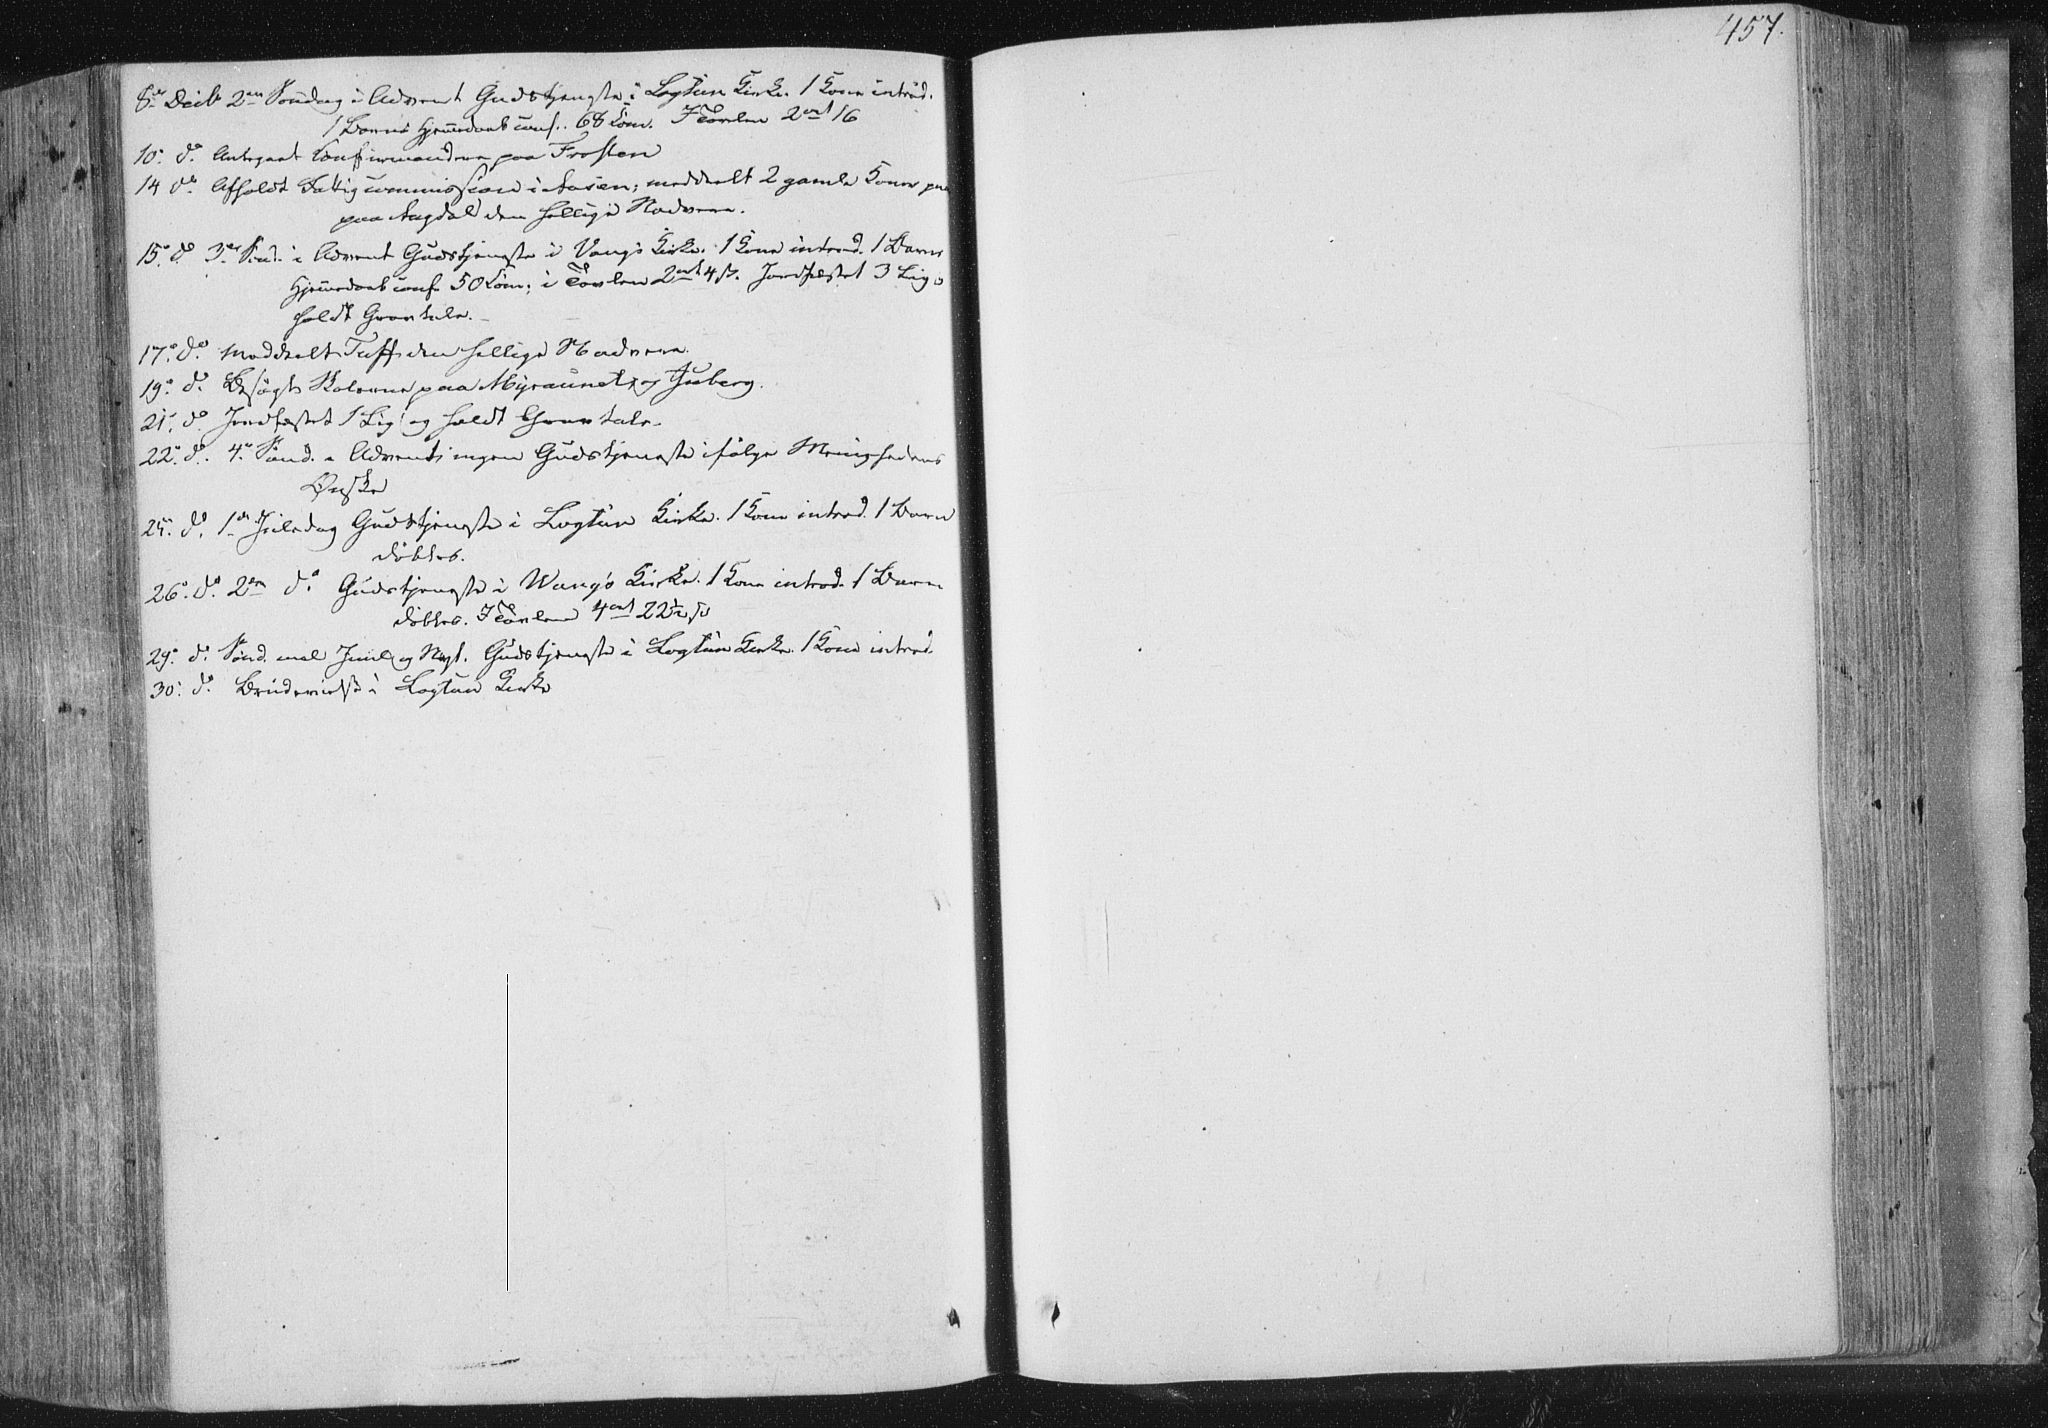 457.
8de Decb 2den Søndag i Advent Gudstjeneste i Logtun Kirke. 1 Kone introd.
1 Barns Hjemmedaab conf. 68 Com. I Tavlen 2 ort 16
10. do. Antegnet Confirmanderne paa Frosten
14 do. Afholdt Fattigcommission i Aasen; meddeelt 2 gamle Koner paa
paa Aagdal den hellige Nadvere.
15. do 3die Sønd. i Advent Gudstjeneste i Vangs Kirke. 1 Kone introd. 1 Barns
Hjemmedaab conf. 50 Com; i Tavlen 2 ort 4 s. Jordfæstet 3 Lig og
holdt Gravtale.
17. do. Meddeelt den hellige Nadvere.
19. do. Besøgt Skolerne paa Myraunet og Juberg.
21. do Jordfæstet 1 Lig og holdt Gravtale.
22. do. 4. Sønd. i Advent; ingen Gudstjeneste ifølge Menighedens
Ønske
25. do. 1ste Juledag Gudstjeneste i Logtun Kirke. 1 Kone introd. 1 Barn
døbtes.
26. do. 2den do. Gudstjeneste i Wangs Kirke. 1 Kone introd. 1 Barn
døbtes. I Tavlen 4 ort 22½ s
29. do. Sønd. mel Juul og Nyt. Gudstjeneste i Logtun Kirke. 1 Kone introd.
30. do. Brudevielse i Logtun Kirke